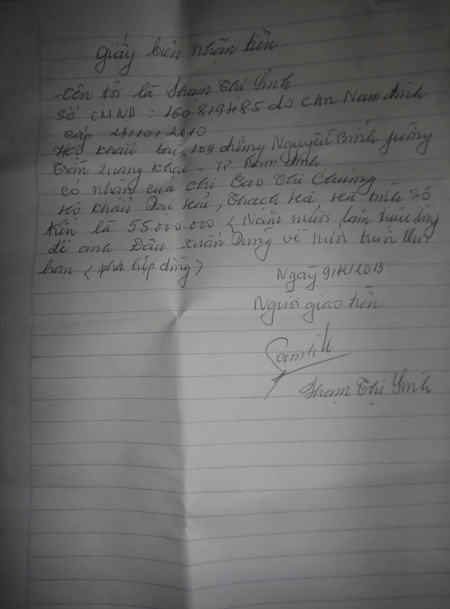 Giấy biên nhận tiền
- Tên tôi là Phạm Thị Ynh
Số CMND : 160819485 do CAN Nam định
cấp 2010
Hộ khẩu tại 109 đường Nguyễn Bính phường
Trần Quang Khải - TP Nam Định
có nhận của chị Cao Thị Chung
Hộ khẩu Thạch Hà, Hà số
tiền là 55.000.000 (Năm mươi lăm triệu đồng
để anh Đậu Xuân Dũng về
hạn
Ngày 2013
Người giao tiền
Phạm Thị Ynh